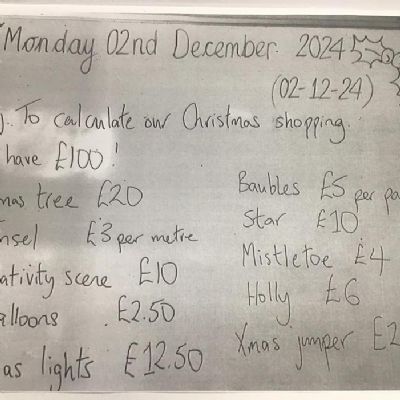 Monday 02nd December 2024
(02-12-24)
To calculate our Christmas shopping.
have £100!
mas tree £20
nsel £3 per metre
ativity scene £10
alloons £2.50
as lights £12.50
Baubles £5 per pa
Star £10
Mistletoe £4
Holly £6
Xmas jumper £2